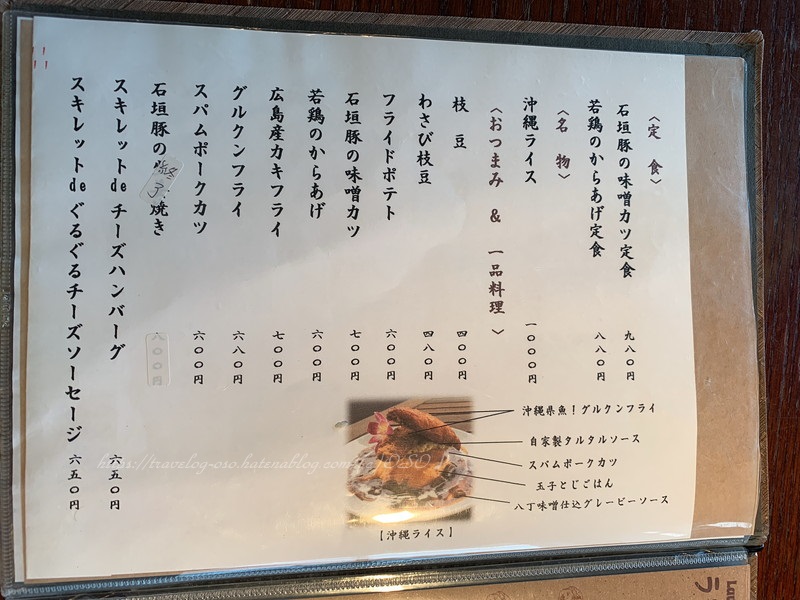 〈定 食〉
石垣豚の味噌カツ定食 九八〇円
若鶏のからあげ定食 八八〇円
〈名 物〉
沖縄ライス 一〇〇〇円
〈おつまみ & 一品料理〉
枝 豆 四〇〇円
わさび枝豆 四八〇円
フライドポテト 六〇〇円
石垣豚の味噌カツ 七〇〇円
若鶏のからあげ 六〇〇円
広島産カキフライ 七〇〇円
グルクンフライ 六八〇円
スパムポークカツ 六〇〇円
石垣豚の 焼き 八〇〇円
スキレットde チーズハンバーグ 六五〇円
スキレットde ぐるぐるチーズソーセージ 六五〇円
沖縄県魚!グルクンフライ
自家製タルタルソース
スパムポークカツ
玉子とじごはん
八丁味噌仕込グレービーソース
【沖縄ライス】
ラ